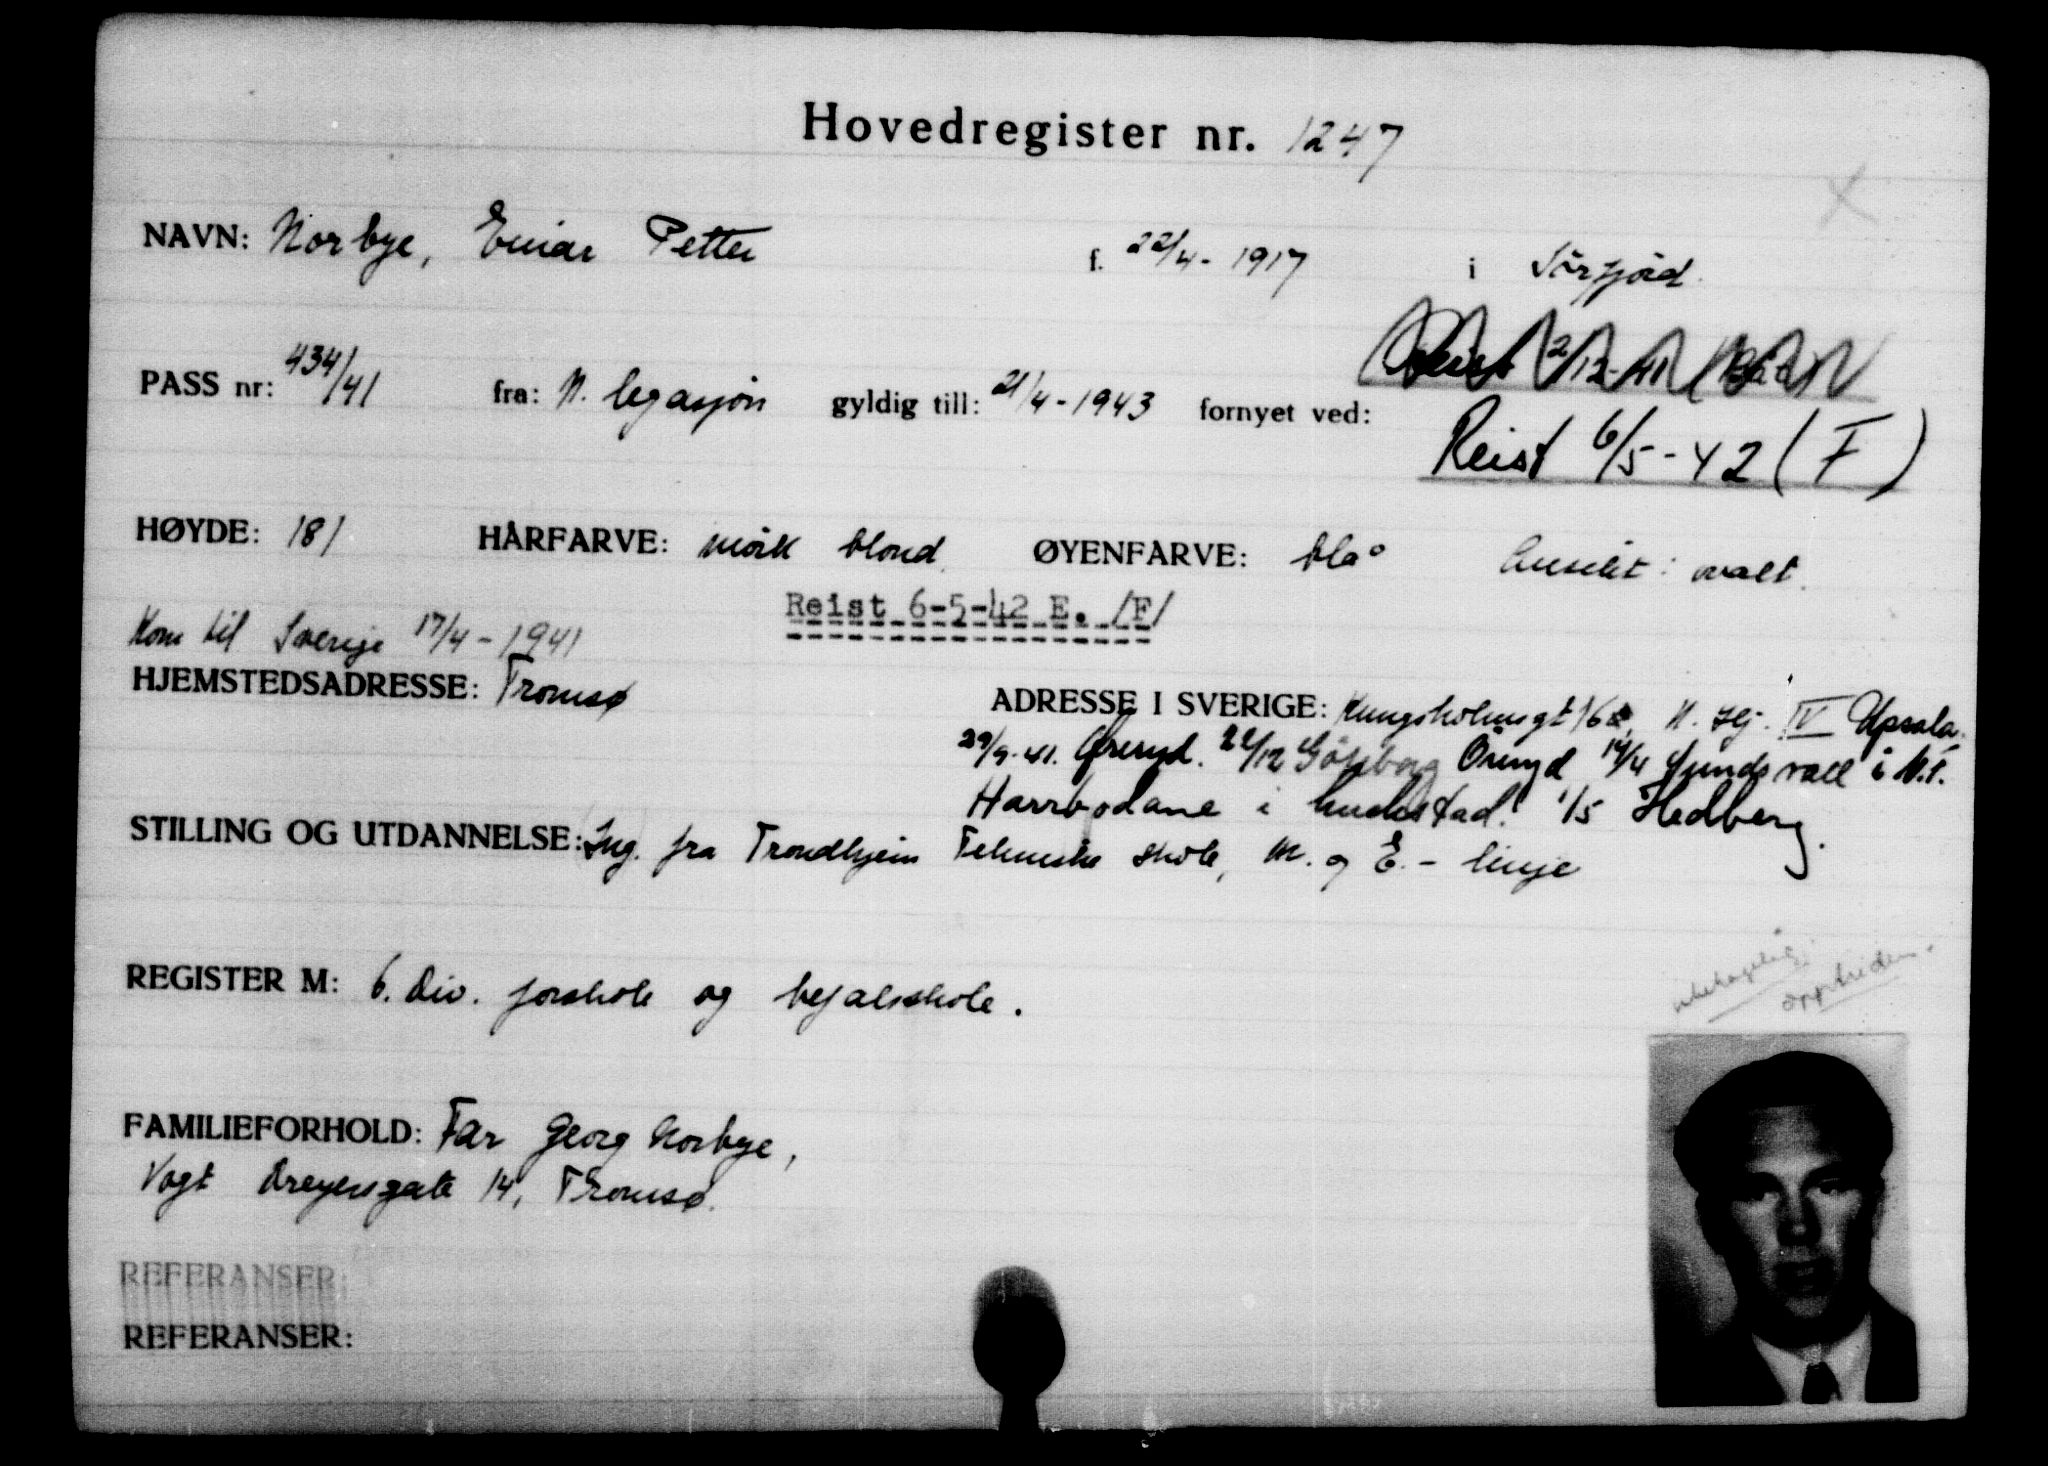 Hovedregister nr. 1247
NAVN: Norbye, Einar Petter f. 22/4 - 1917 i Sörfjord.
Reist 2/12-41
PASS nr: 434/41 fra: N. legasjon gyldig till: 21/4 - 1943 fornyet ved:
Reist 6/5-42 (F)
HØYDE: 181 HÅRFARVE: mörk blond. ØYENFARVE: blå Ansikt: ovalt.
Reist 6-5-42 E. /F/
Kom til Sverige 17/4 - 1941
HJEMSTEDSADRESSE: Tromsø
ADRESSE I SVERIGE: Kungsholmsgt N. Hj. IV Upsala.
29/9-41. Öreryd. 22/12 Göteborg Öreryd 14/4 Sundsvall i N.T.
Harrbodane i 1/5 Hedberg.
STILLING OG UTDANNELSE: Ing. fra Trondhjem Tekniske skole, M. og E. - linje
REGISTER M: 6. Div. forskole og befalsskole.
ubehagelig
opptreden.
FAMILIEFORHOLD: Far Georg Norbye,
Vogt Dreyersgate 14, Tromsø.
REFERANSER:
REFERANSER: